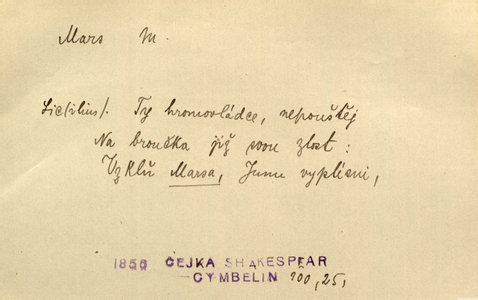 Mars m.
Sic(ilius). Ty hromovládce, nepouštěj
Na broučka již svou zlost:
Vzklň Marsa, Junu vyplísni,
1856 ČEJKA SHAKESPEAR
CYMBELIN 100,25,